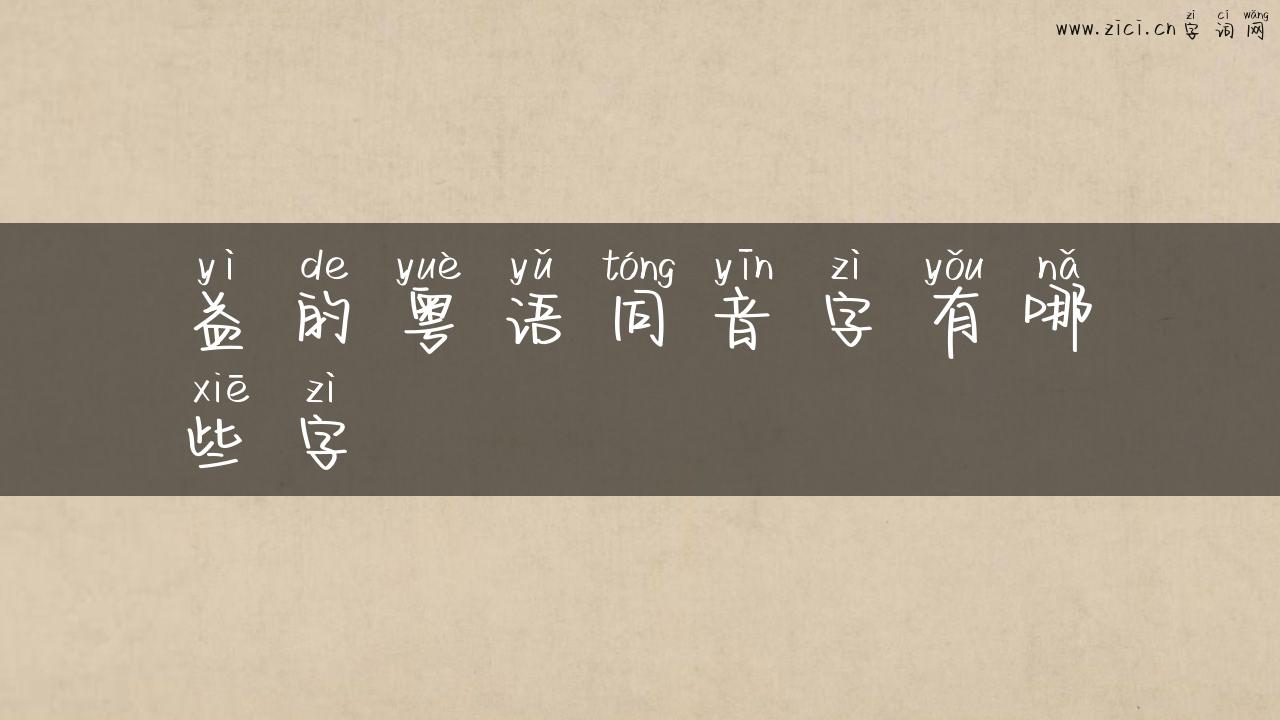 zì cí wǎng
www.zici.cn 字词网
yì de yuè yǔ tóng yīn zì yǒu nǎ
益的粤语同音字有哪
xiē zì
些字